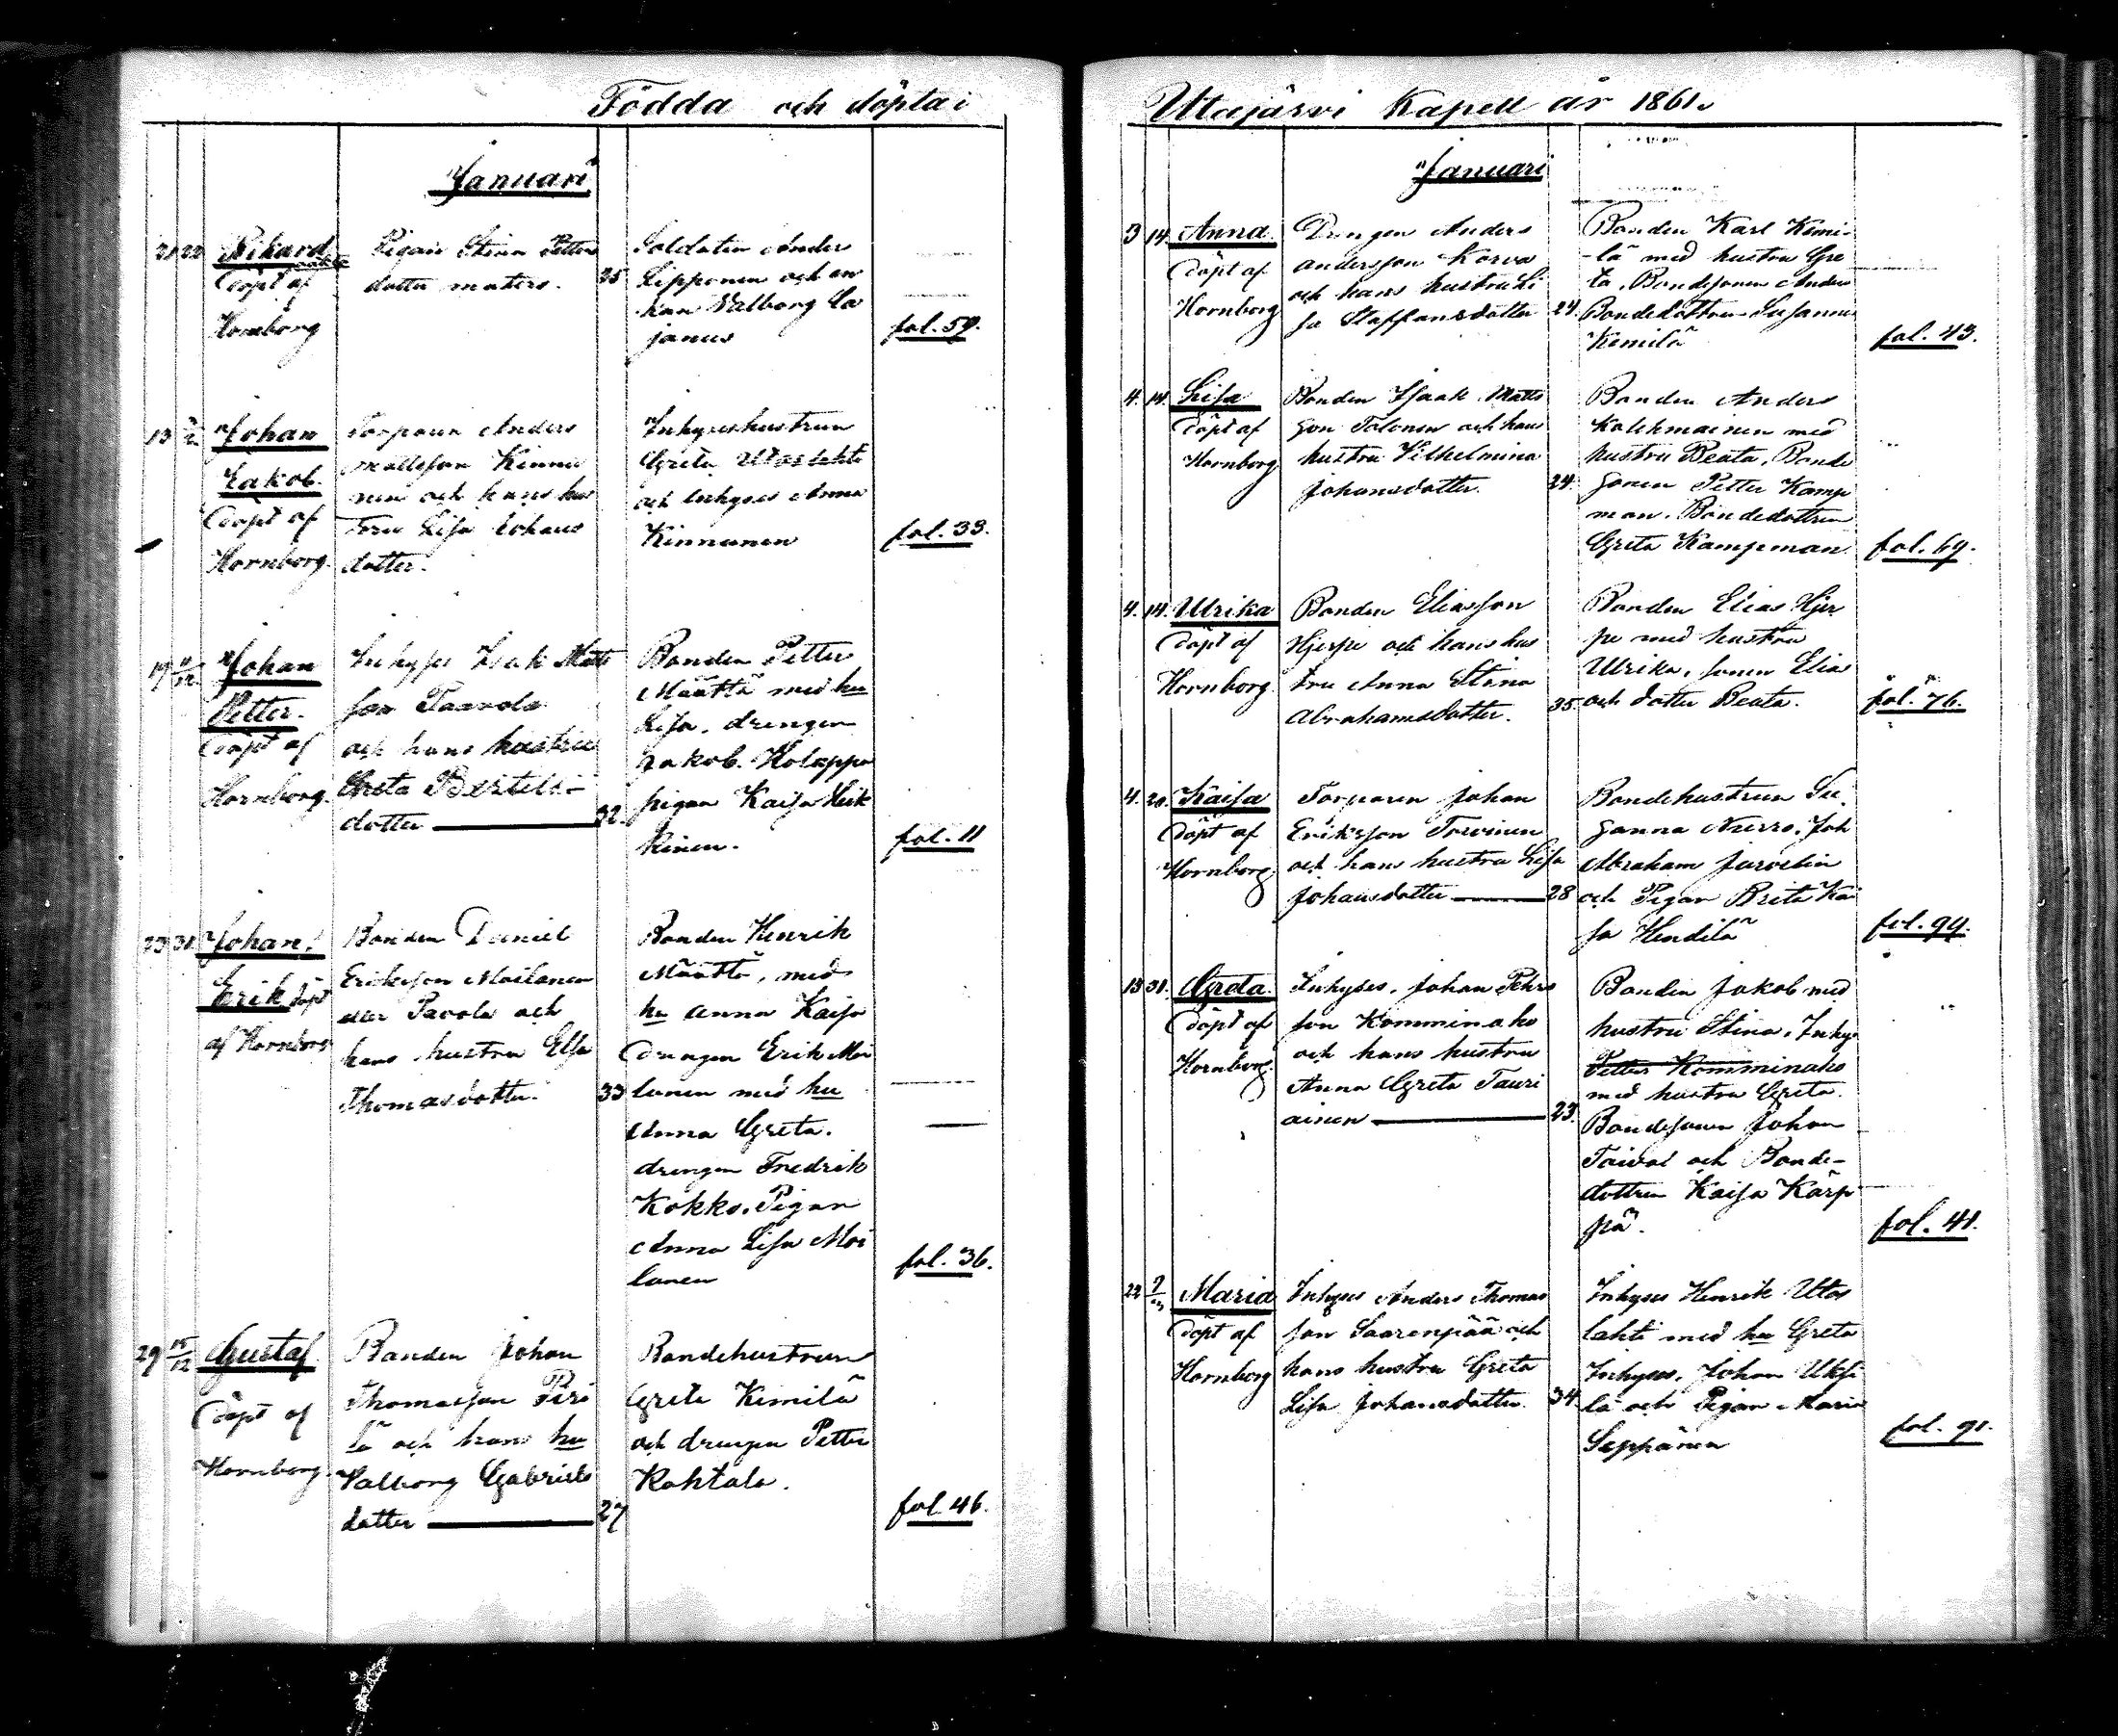 Födda och döpta i
Januari
21 22 Rikard
oäkta
Pigan Stina Petter
dotter
25
döpt af
Hornborg
Soldaten Anders
Lipponen och
Valborg La
janus
fol. 59.
13 Johan
Jakob.
döpt af
Hornborg.
Torparen Anders
Mattsson Kinnu
nen och hans hus
tru Lisa Johans
dotter.
Inhyseshustrun
Greta Utoslahti
och Inhyses Anna
Kinnunen
fol. 33.
19 Johan
Petter.
döpt af
Hornborg.
Inhyses Isak Matts
son Paavola
och hans hustru
Greta Bertils-
dotter
32.
Bonden Petter
Määttä med hu
Lisa, drengen
Jakob. Holappa
pigan Kaisa Heik
kinen.
fol. 11
23 31 Johan
Erik döpt
af Hornborg
Bonden Daniel
Eriksson Moilanen
eller Pavola och
hans hustru Elsa
Thomasdotter.
33
Bonden Henrik
Määttä, med
hu Anna Kaisa
drengen Erik Moi
lanen med hu
Anna Greta.
drengen Fredrik
Kokko. Pigan
Anna Lisa Moi
lanen
fol. 36.
29 15/12 Gustaf.
döpt af
Hornborg.
Bonden Johan
Thomasson Piri
lä och hans hu
Valborg Gabriels
dotter
27
Bondehustrun
Greta Kimilä
och drengen Petter
Kohtala.
fol. 46.
Utajärvi Kapell år 1861.
Januari
3 14 Anna
döpt af
Hornborg
Drengen Anders
Andersson Korva
och hans hustru Li
sa Staffansdotter
24.
Bonden Karl Kimi-
lä med hustru Gre
ta, Bondesonen Anders
Bondedottren Susanna
Kemilä
fol. 43.
4. 14. Lisa
döpt af
Hornborg
Bonden Isaak Matts
son Tolonen och hans
hustru Vilhelmina
Johansdotter.
24.
Bonden Anders
Kalehmainen med
hustru Beata, Bonde
sonen Petter Kamp
man. Bondedottren
Greta Kampman.
fol. 69.
4. 14. Ulrika
döpt af
Hornborg.
Bonden Eliasson
Hjerpe och hans hus
tru Anna Stina
Abrahamsdotter.
35.
Bonden Elias Hjer
pe med hustru
Ulrika, sonen Elias
och dotter Beata.
fol. 76.
4. 20. Kaisa
döpt af
Hornborg.
Torparen Johan
Eriksson Torvinen
och hans hustru Lisa
Johansdotter
28
Bondehustrun Su
sanna Nurro, Joh
Abraham Jurvelin
och Pigan Brita Kai
sa Hendilä
fol. 99.
13 31. Greta.
döpt af
Hornborg.
Inhyses. Johan Pehrs
son Komminaho
och hans hustru
Anna Greta Tauri
ainen
23.
Bonden Jakob med
hustru Stina, Inhys
Petter Komminaho
med hustru Greta.
Bondesonen Johan
Toivol och Bonde-
dottren Kaisa Kärp
pä.
fol. 41.
22 Maria
döpt af
Hornborg
Inhyses Anders Thomas
son Saarenpää och
hans hustru Greta
Lisa Johansdotter.
34.
Inhyses Henrik Utos
lahti med hu Greta
Inhyses. Johan Uksi
lä och Pigan Maria
Seppänen
fol. 91.